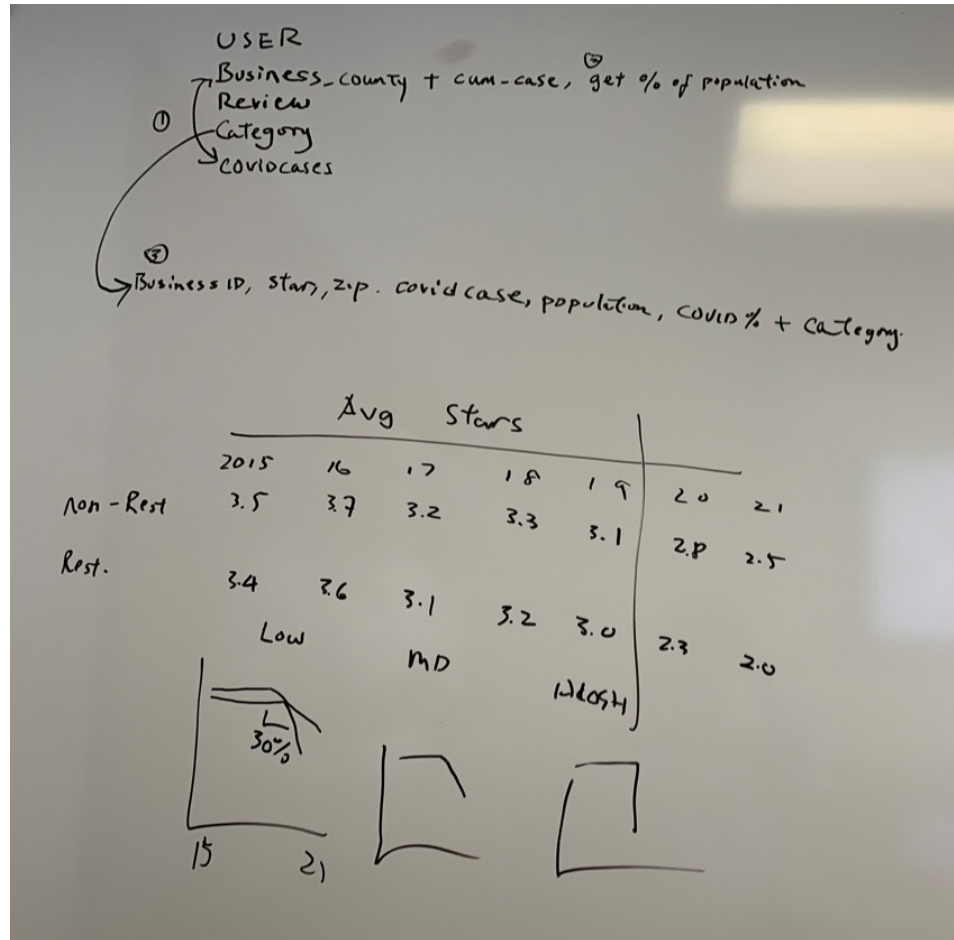 USER
②
Business_county + cum-case, get % of population
Review
①
Category
COVIDCASES
③
Business ID, stars, zip. covid case, population, COVID % + Category.
Avg Stars
2015 16 17 18 19 20 21
non-Rest 3.5 3.7 3.2 3.3 3.1 2.8 2.5
Rest. 3.4 3.6 3.1 3.2 3.0 2.3 2.0
Low MD
30%
15 21